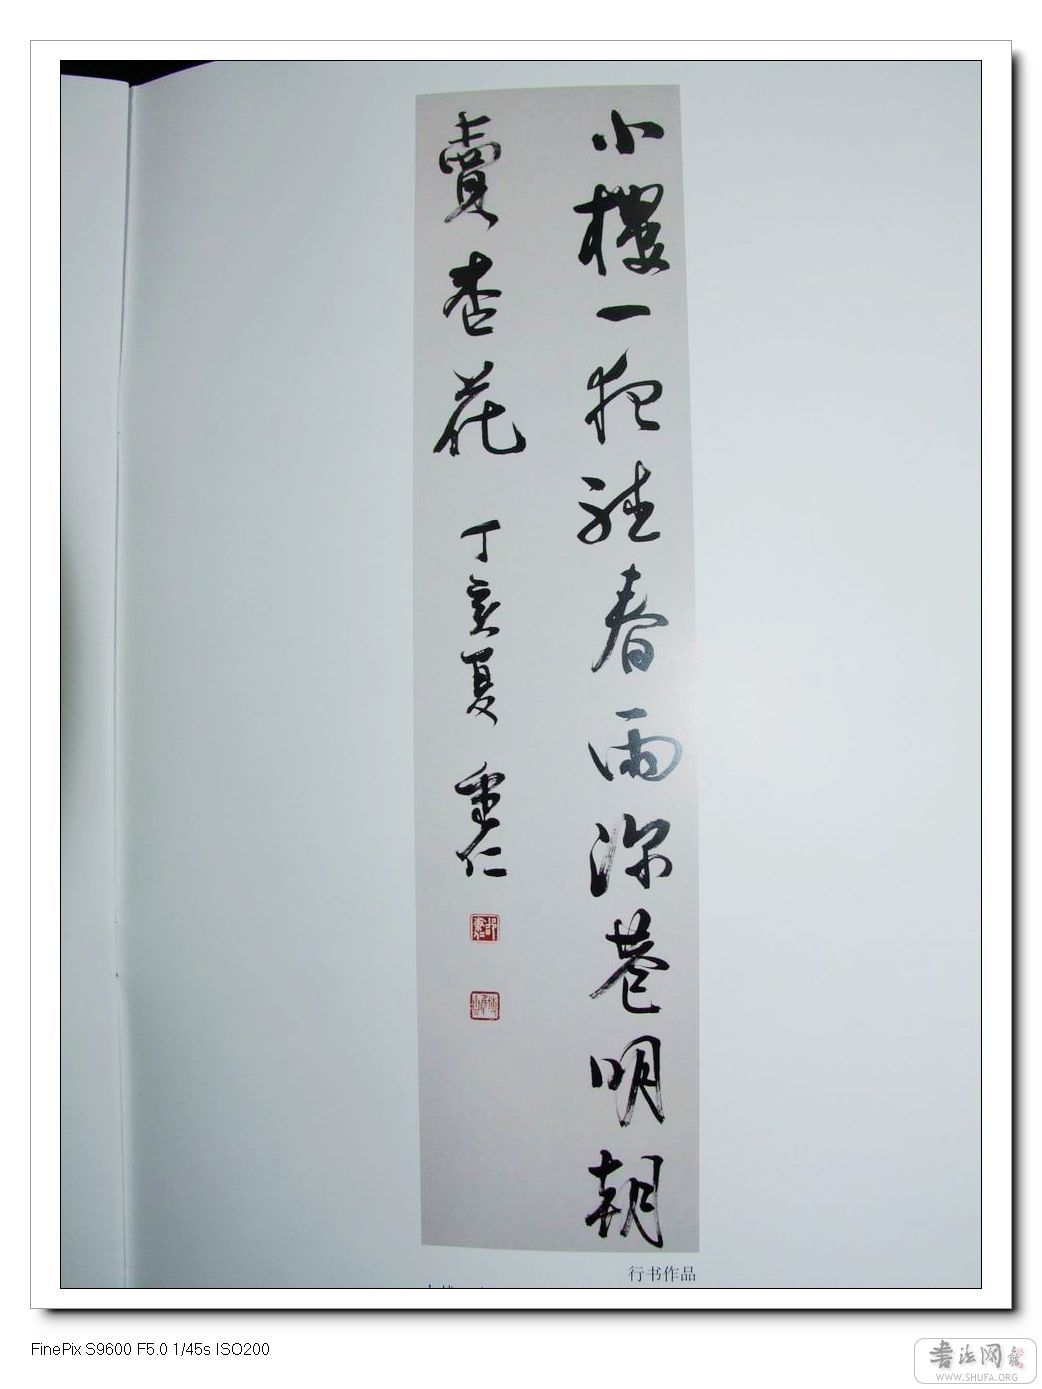 小樓一夜聽春雨深巷明朝
賣杏花
丁亥夏 秉仁
行书作品
FinePix S9600 F5.0 1/45s ISO200
書法网
WWW.SHUFA.ORG